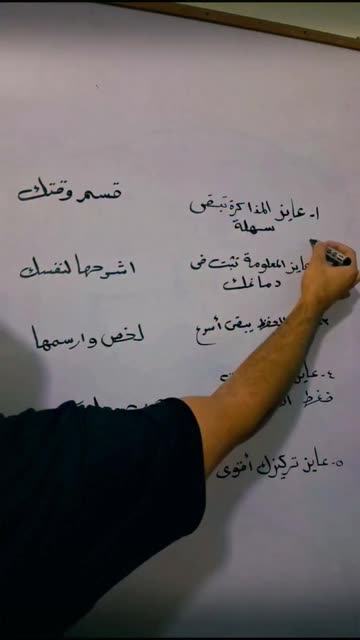 ١- عايز المذاكرة تبقى
سهلة
قسم وقتك
عايز المعلومة تثبت فى
دماغك
اشرحها لنفسك
الحفظ يبقى أسرع
لخص وارسمها
٤- عايز
ضغط
٥- عايز تركيزك أقوى